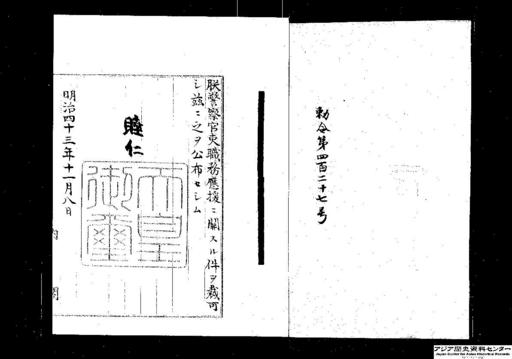 勅令第四百二十七号
朕警察官吏職務應援ニ關スル件ヲ裁可
シ茲ニ之ヲ公布セシム
睦仁
天皇御璽
明治四十三年十一月八日
内閣
アジア歴史資料センター
Japan Center for Asian Historical Records